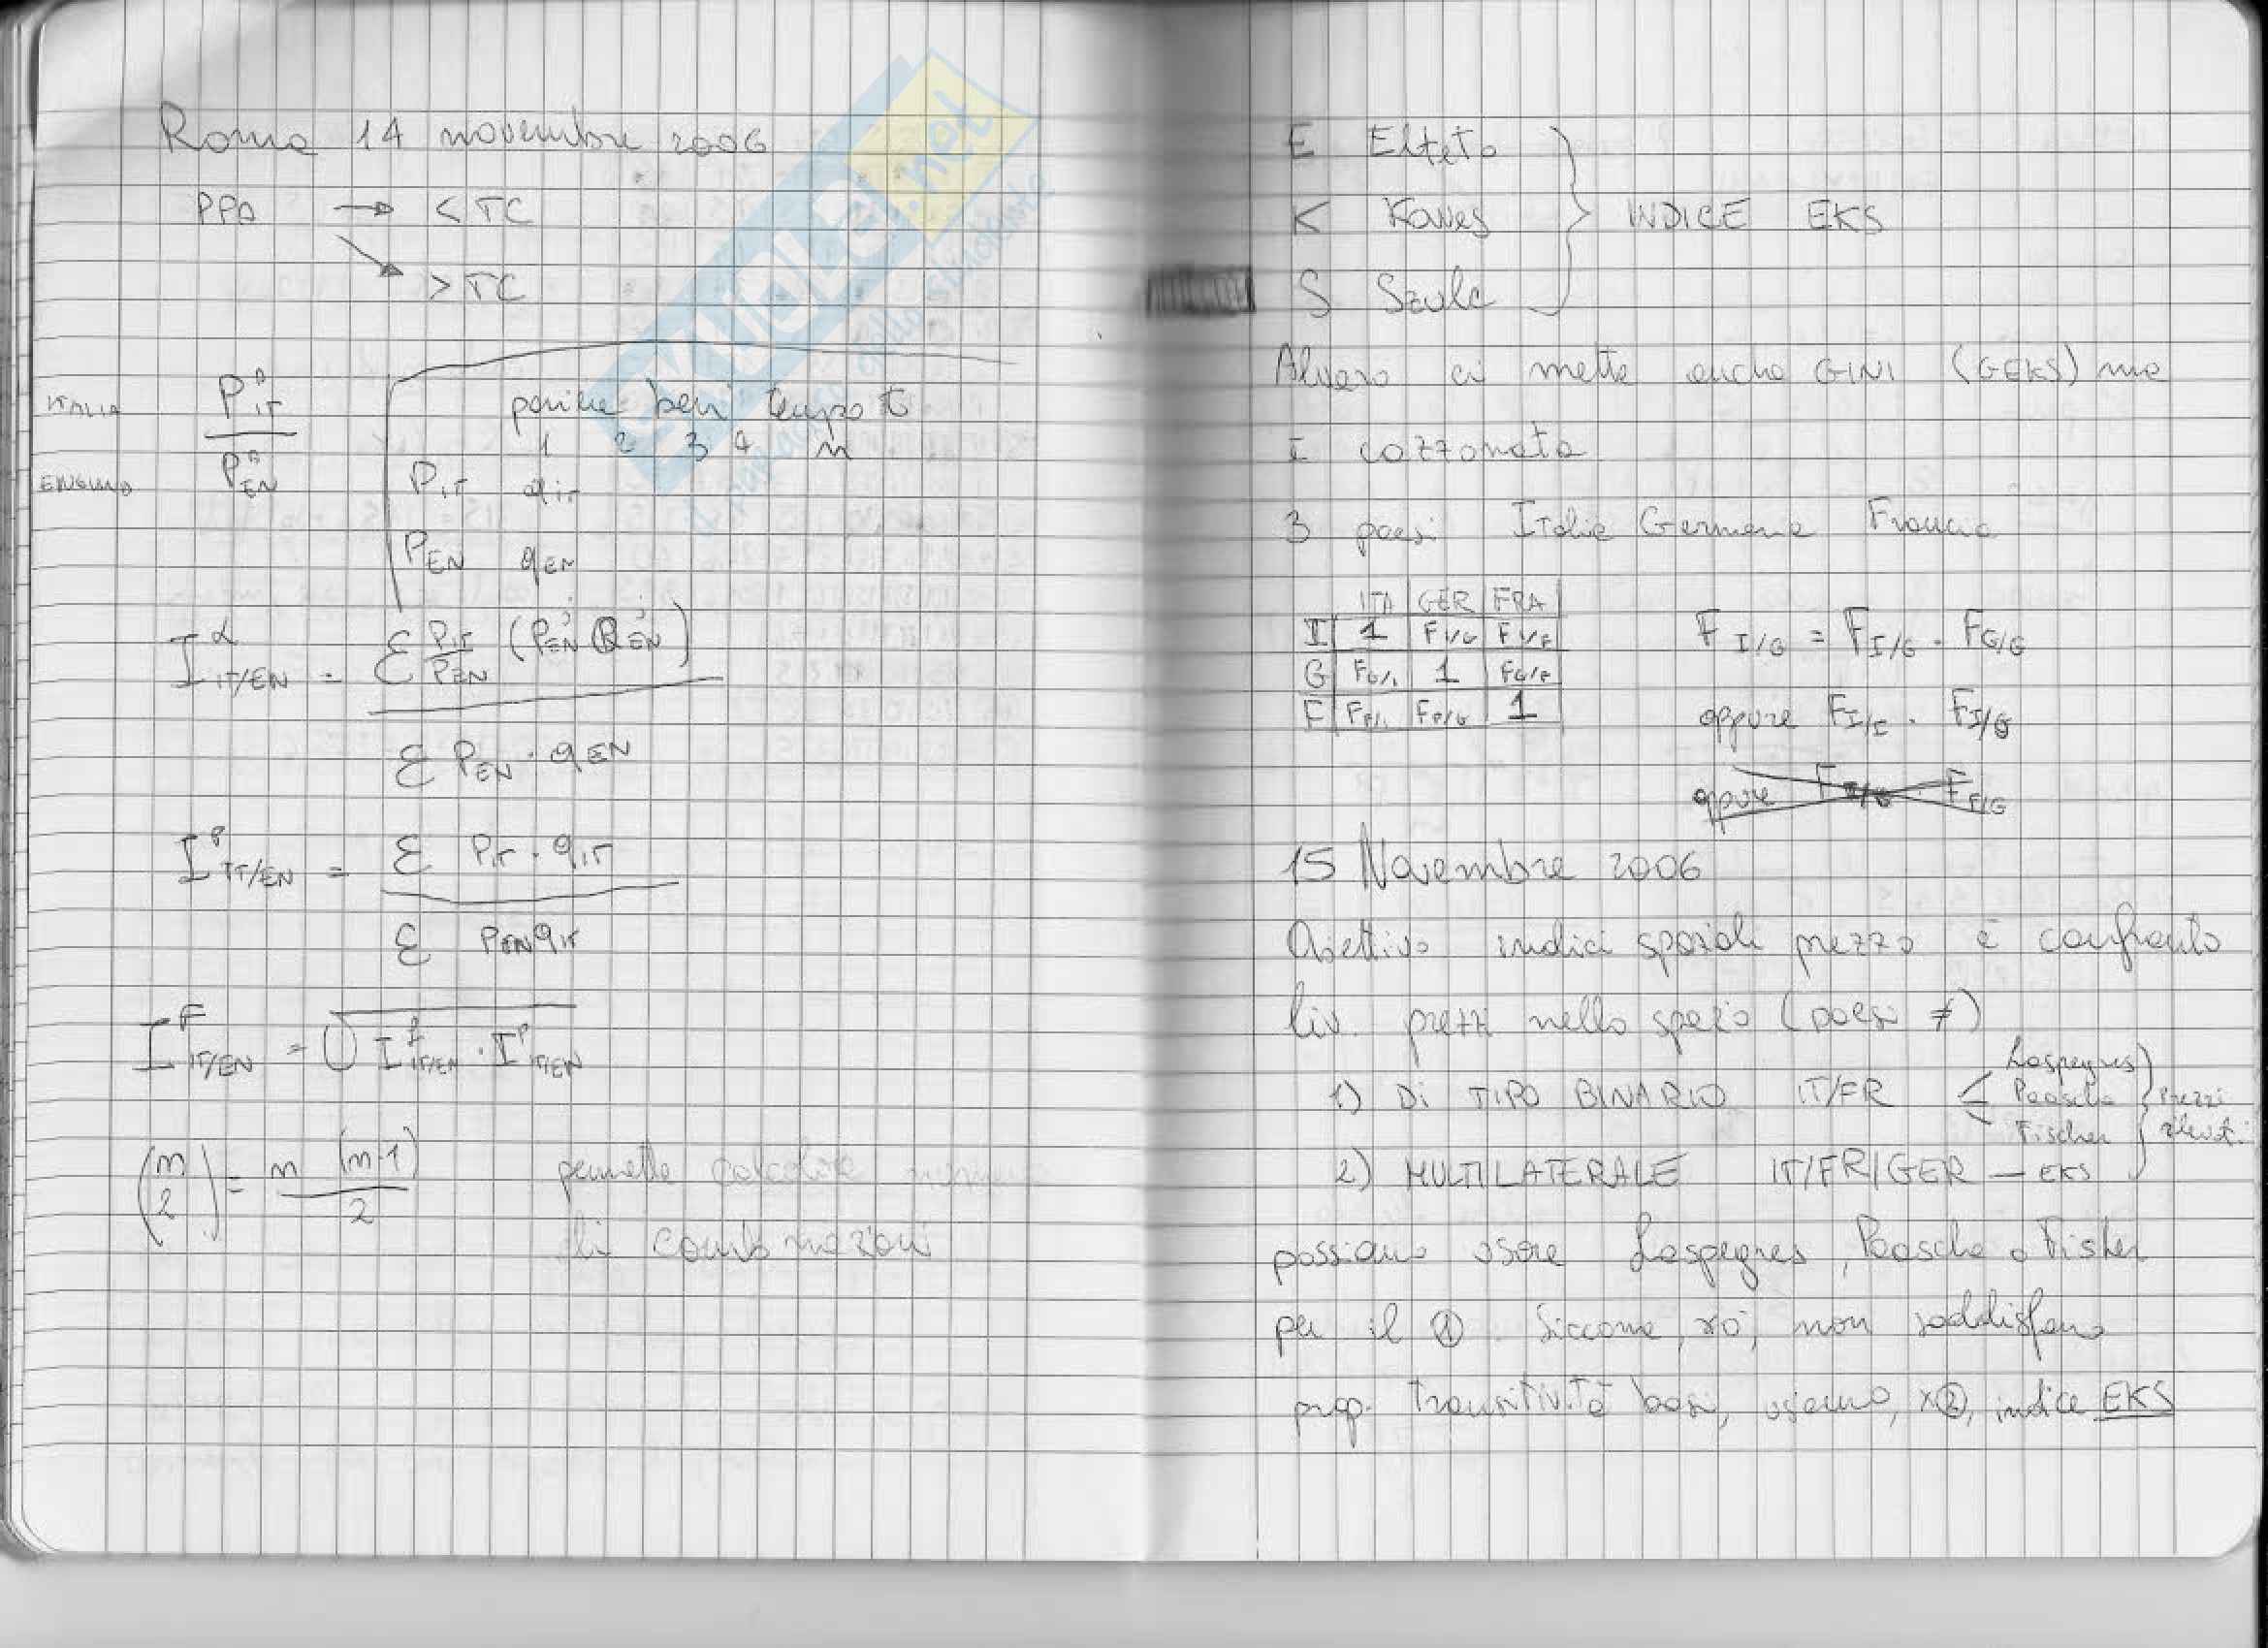 Roma 14 novembre 2006
PPA → < TC
> TC
ITALIA P^A_IT
ENGLAND P^A_EN
paniere beni tempo t
1 2 3 4 n
P_IT q_IT
P_EN q_EN
I^L_IT/EN = Σ P_IT/P_EN (P_EN Q_EN)
Σ P_EN · q_EN
I^P_IT/EN = Σ P_IT · q_IT
Σ P_EN q_IT
I^F_IT/EN = √ I^L_IT/EN · I^P_IT/EN
(n 2) = n (n-1) / 2 permette calcolare numero
di combinazioni
E Elteto
K Koves } INDICE EKS
S Szulc
Alvaro ci mette anche GINI (GEKS) ma
è cazzata
3 paesi Italia Germania Francia
ITA GER FRA
I 1 F I/G F I/F
G F G/I 1 F G/F
F F F/I F F/G 1
F I/G = F I/G · F G/G
oppure F I/I · F I/G
oppure F I/G · F F/G
15 Novembre 2006
Obiettivo indici spaziali prezzo è confronto
liv. prezzi nello spazio (paesi ≠)
1) Di TIPO BINARIO IT/FR < Laspeyres Paasche Fischer } Prezzi rilevati
2) MULTILATERALE IT/FR/GER — EKS
possiamo usare Laspeyres, Paasche o Fisher
per il ①. Siccome, xò, non soddisfano
prop. transitività basi, usiamo, x②, indice EKS
SKUOLA.net
il paradiso dello studente